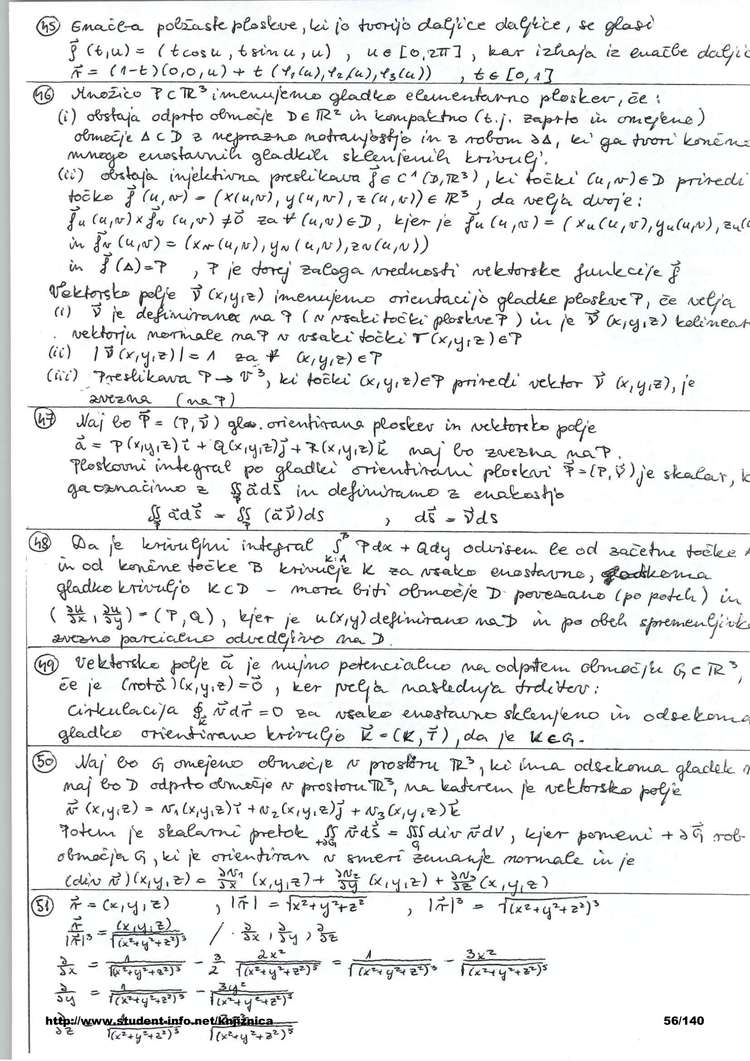 45 Enačba polžaste ploskve, ki jo tvorijo daljice daljice, se glasi
ρ⃗(t,u) = (t cosu, t sinu, u) , u∈[0,2π] , kar izhaja iz enačbe daljic
r⃗ = (1-t)(0,0,u) + t (φ₁(u),φ₂(u),φ₃(u)) , t∈[0,1]
46 Množico P⊂ℝ³ imenujemo gladko elementarno ploskev, če:
(i) obstaja odprto območje D∈ℝ² in kompaktno (t.j. zaprto in omejeno)
območje Δ⊂D z neprazno notranjostjo in z robom ∂Δ, ki ga tvori končno
mnogo enostavnih gladkih sklenjenih krivulj.
(ii) obstaja injektivna preslikava ρ⃗∈C¹(D,ℝ³), ki točki (u,v)∈D priredi
točko ρ⃗(u,v) = (x(u,v), y(u,v), z(u,v))∈ℝ³, da velja dvoje:
ρ⃗u(u,v)×ρ⃗v(u,v) ≠ 0⃗ za ∀(u,v)∈D, kjer je ρ⃗u(u,v) = (xu(u,v), yu(u,v), zu(
in ρ⃗v(u,v) = (xv(u,v), yv(u,v), zv(u,v))
in ρ⃗(Δ)=P , P je torej zaloga vrednosti vektorske funkcije ρ⃗
Vektorsko polje ν⃗(x,y,z) imenujemo orientacijo gladke ploskve P, če velja
(i) ν⃗ je definirana na P (v vsaki točki ploskve P) in je ν⃗(x,y,z) kolinear
vektorju normale na P v vsaki točki T(x,y,z)∈P
(ii) |ν⃗(x,y,z)| = 1 za ∀ (x,y,z)∈P
(iii) Preslikava P→V³, ki točki (x,y,z)∈P priredi vektor ν⃗(x,y,z), je
zvezna (na P)
47 Naj bo P⃗ = (P,ν⃗) gla. orientirana ploskev in vektorsko polje
a⃗ = P(x,y,z)i⃗ + Q(x,y,z)j⃗ + R(x,y,z)k⃗ naj bo zvezna na P.
Ploskovni integral po gladki orientirani ploskvi P⃗=(P,ν⃗) je skalar, k
ga označimo z ∬_P⃗ a⃗dS⃗ in definiramo z enakostjo
∬_P⃗ a⃗dS⃗ = ∬_P (a⃗ν⃗)dS , dS⃗ = ν⃗dS
48 Da je krivuljni integral ∫_{K:A}^{B} Pdx + Qdy odvisen le od začetne točke A
in od končne točke B krivulje K za vsako enostavno, odsekoma
gladko krivuljo K⊂D – mora biti območje D povezano (po poteh) in
(∂u/∂x, ∂u/∂y) = (P,Q), kjer je u(x,y) definirano na D in po obeh spremenljivk
zvezno parcialno odvedljivo na D.
49 Vektorsko polje a⃗ je nujno potencialno na odprtem območju G⊂ℝ³,
če je (rot a⃗)(x,y,z)=0⃗, ker velja naslednja trditev:
Cirkulacija ∮_K⃗ v⃗dr⃗ = 0 za vsako enostavno sklenjeno in odsekoma
gladko orientirano krivuljo K⃗ = (K,τ⃗), da je K∈G.
50 Naj bo G omejeno območje v prostoru ℝ³, ki ima odsekoma gladek r
naj bo D odprto območje v prostoru ℝ³, na katerem je vektorsko polje
v⃗(x,y,z) = v₁(x,y,z)i⃗ + v₂(x,y,z)j⃗ + v₃(x,y,z)k⃗
Potem je skalarni pretok ∬_{+∂G⃗} v⃗dS⃗ = ∭_G div v⃗ dV, kjer pomeni +∂G⃗ rob
območja G, ki je orientiran v smeri zunanje normale in je
(div v⃗)(x,y,z) = ∂v₁/∂x (x,y,z) + ∂v₂/∂y (x,y,z) + ∂v₃/∂z (x,y,z)
51 r⃗ = (x,y,z) , |r⃗| = √(x²+y²+z²) , |r⃗|³ = √(x²+y²+z²)³
r⃗/|r⃗|³ = (x,y,z)/√(x²+y²+z²)³ / · ∂/∂x, ∂/∂y, ∂/∂z
∂/∂x = 1/√(x²+y²+z²)³ - 3/2 2x²/√(x²+y²+z²)⁵ = 1/√(x²+y²+z²)³ - 3x²/√(x²+y²+z²)⁵
∂/∂y = 1/√(x²+y²+z²)³ - 3y²/√(x²+y²+z²)⁵
∂/∂z = 1/√(x²+y²+z²)³ √(x²+y²+z²)⁵
http://www.student-info.net/knjiznica 56/140